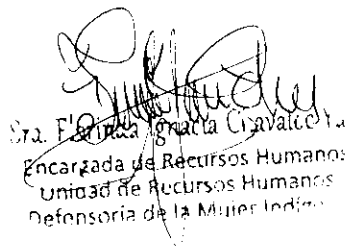 Sra. Florinda Ignacia Chavalico
Encargada de Recursos Humanos
Unidad de Recursos Humanos
Defensoría de la Mujer